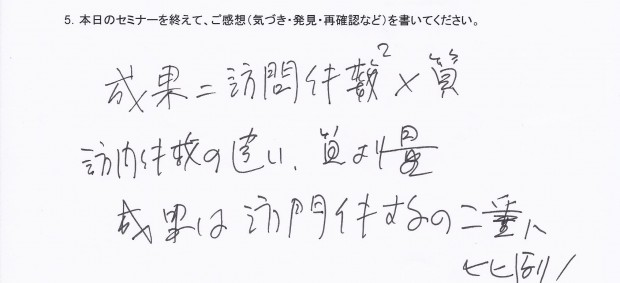 5. 本日のセミナーを終えて、ご感想(気づき・発見・再確認など)を書いてください。
成果=訪問件数²×質
訪問件数の違い、質より量
成果は訪問件数の二乗に
比例!